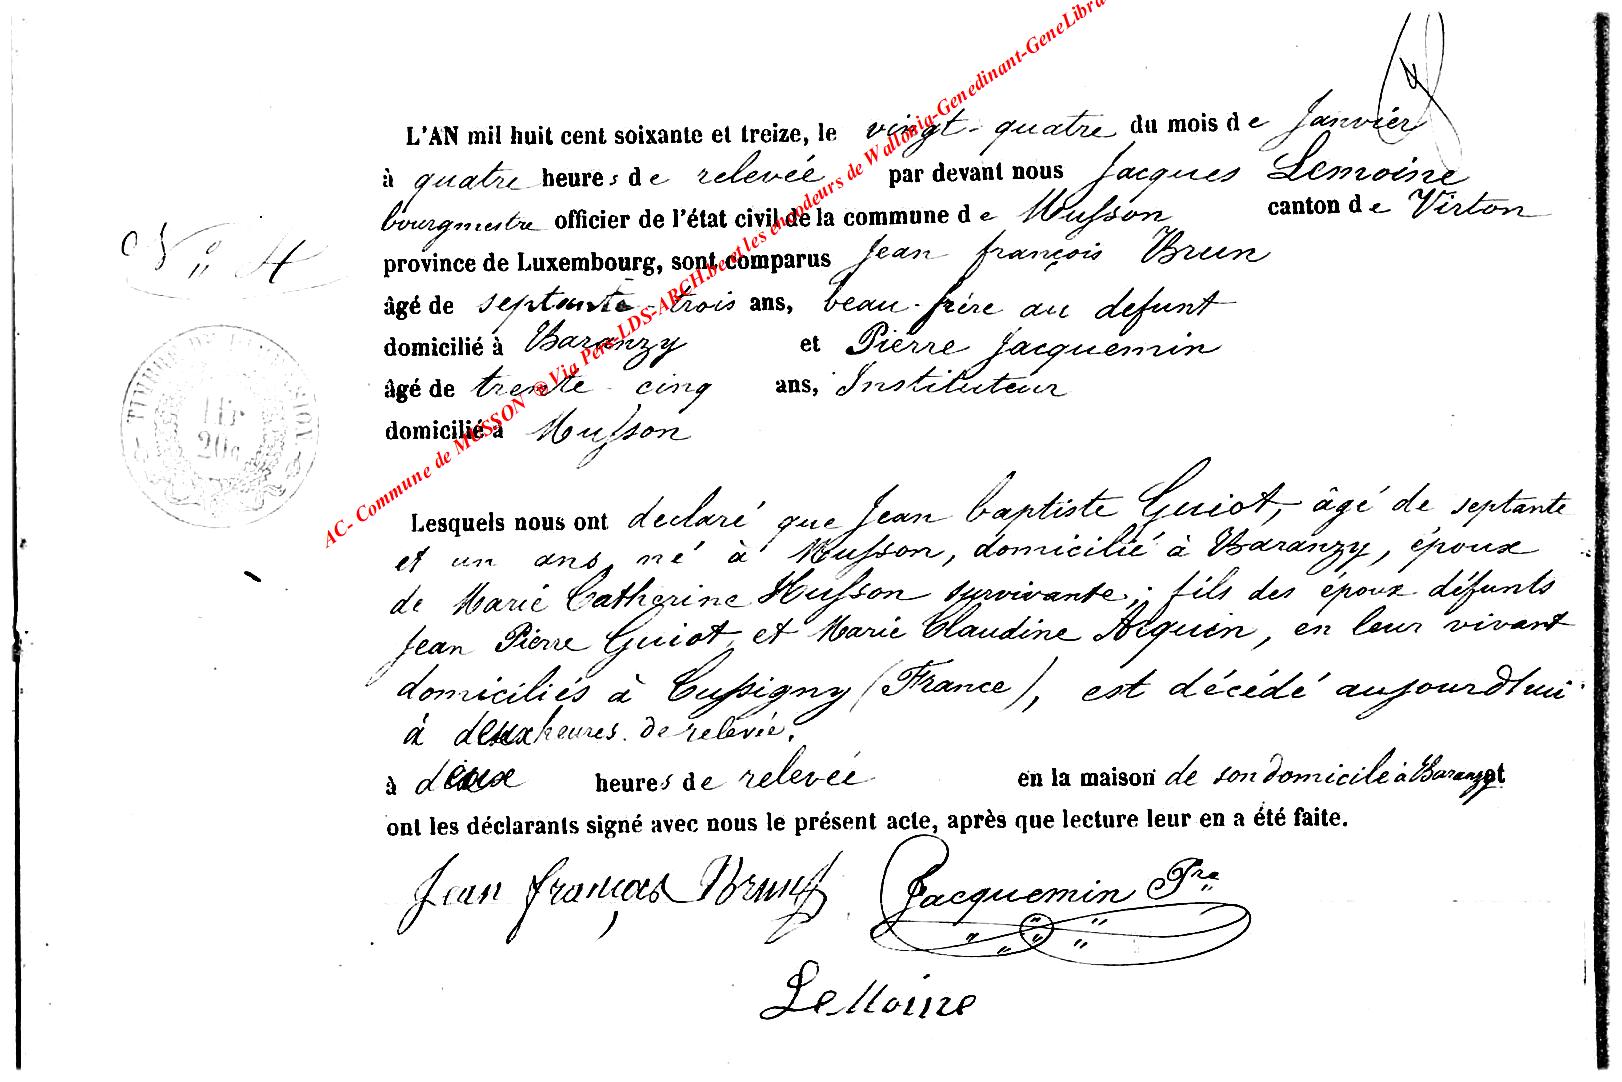 L'AN mil huit cent soixante et treize, le vingt-quatre du mois de Janvier
à quatre heures de relevée par devant nous Jacques Lemoine
bourgmestre officier de l'état civil de la commune de Musson canton de Virton
province de Luxembourg, sont comparus Jean françois Brun
âgé de septante-trois ans, beau-frère au defunt
domicilié à Baranzy et Pierre Jacquemin
âgé de trente-cinq ans, Instituteur
domicilié à Musson
N° 4
TIMBRE DE DIMENSION
1 fr
20c
AC- Commune de MUSSON @ Via Pere-LDS-ARCH.be et les encodeurs de Wallonia-Genedinant-GeneLibra
Lesquels nous ont declaré que Jean baptiste Guiot, âgé de septante
et un ans, né à Musson, domicilié à Baranzy, époux
de Marie Catherine Husson survivante; fils des époux défunts
Jean Pierre Guiot et Marie Claudine Arquin, en leur vivant
domiciliés à Cussigny (France), est décédé aujourd'hui
à deux heures de relevée.
à deux heures de relevée en la maison de son domicile à Baranzy et
ont les déclarants signé avec nous le présent acte, après que lecture leur en a été faite.
Jean françois Brun Jacquemin Pre
LeMoine